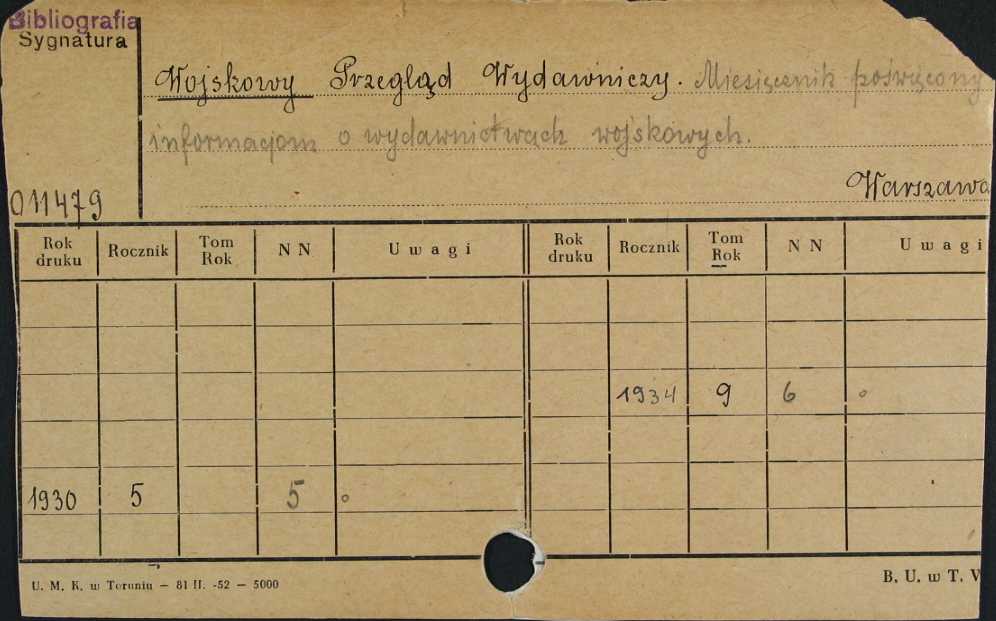 Bibliografia
Sygnatura
Wojskowy Przegląd Wydawniczy. Miesięcznik poświęcony
informacjom o wydawnictwach wojskowych.
Warszawa
011479
Rok druku Rocznik Tom Rok N N Uwagi Rok druku Rocznik Tom Rok N N Uwagi
1934 9 6 o
1930 5 5 o
U. M. K. w Toruniu – 81 II. -52 – 5000
B. U. w T. V